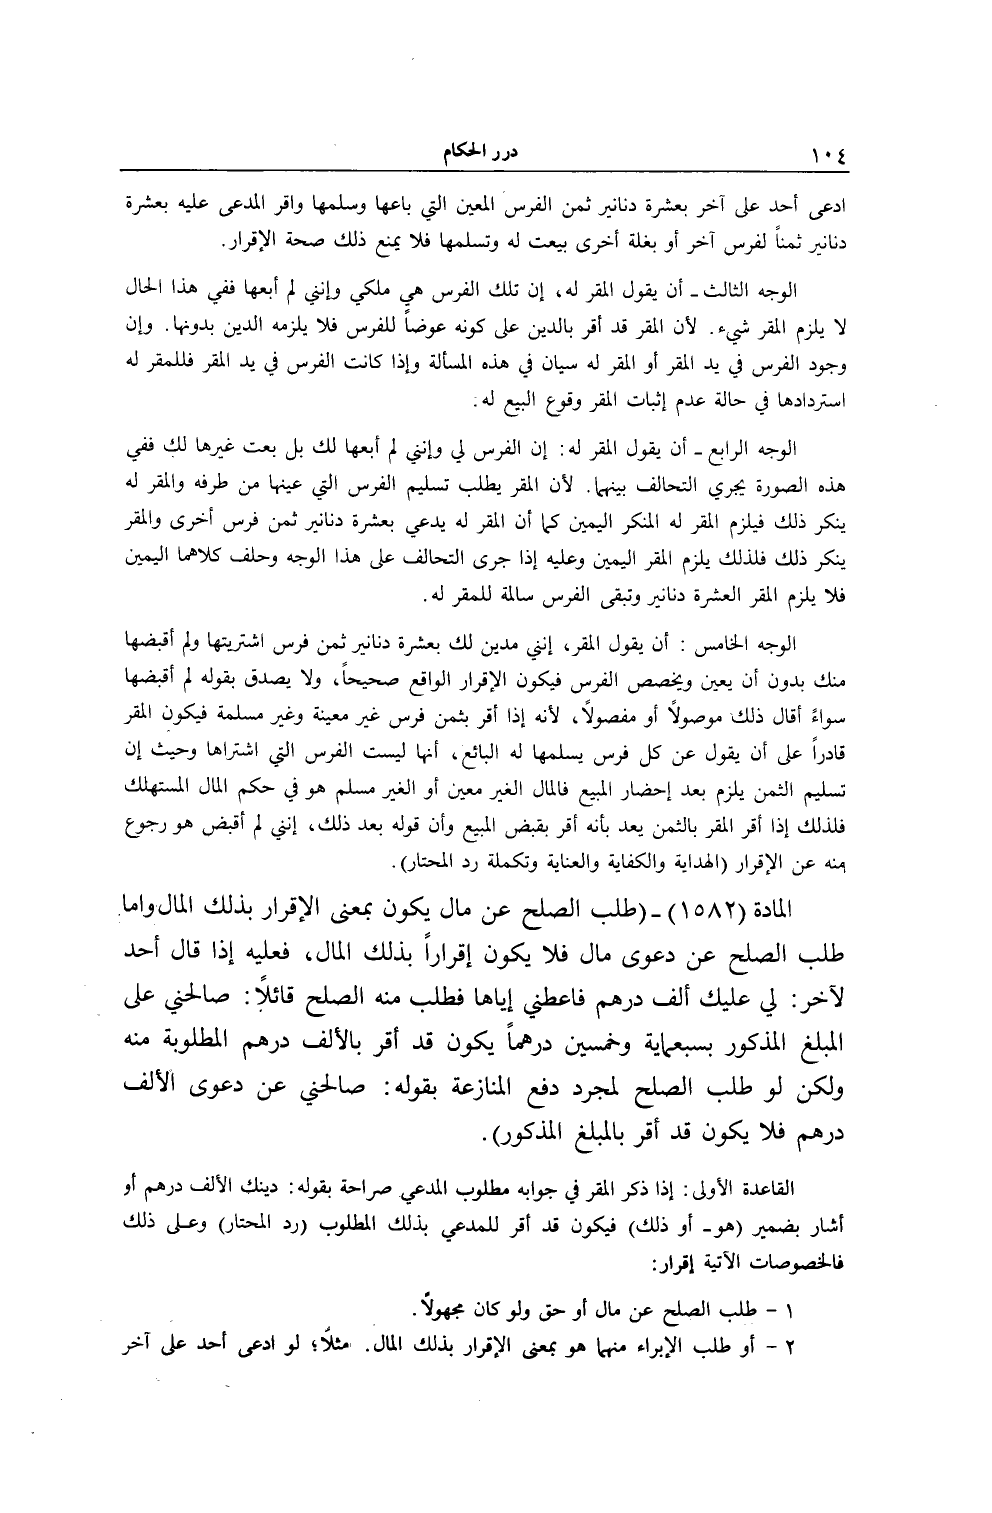 ١٠٤ درر الحكام
ادعى أحد على آخر بعشرة دنانير ثمن الفرس المعين التي باعها وسلمها واقر المدعى عليه بعشرة
دنانير ثمناً لفرس آخر أو بغلة أخرى بيعت له وتسلمها فلا يمنع ذلك صحة الإقرار.
الوجه الثالث ـ أن يقول المقر له، إن تلك الفرس هي ملكي وإنني لم أبعها ففي هذا الحال
لا يلزم المقر شيء. لأن المقر قد أقر بالدين على كونه عوضاً للفرس فلا يلزمه الدين بدونها. وإن
وجود الفرس في يد المقر أو المقر له سيان في هذه المسألة وإذا كانت الفرس في يد المقر فللمقر له
استردادها في حالة عدم إثبات المقر وقوع البيع له.
الوجه الرابع ـ أن يقول المقر له: إن الفرس لي وإنني لم أبعها لك بل بعت غيرها لك ففي
هذه الصورة يجري التحالف بينهما. لأن المقر يطلب تسليم الفرس التي عينها من طرفه والمقر له
ينكر ذلك فيلزم المقر له المنكر اليمين كما أن المقر له يدعي بعشرة دنانير ثمن فرس أخرى والمقر
ينكر ذلك فلذلك يلزم المقر اليمين وعليه إذا جرى التحالف على هذا الوجه وحلف كلاهما اليمين
فلا يلزم المقر العشرة دنانير وتبقى الفرس سالمة للمقر له.
الوجه الخامس : أن يقول المقر، إنني مدين لك بعشرة دنانير ثمن فرس اشتريتها ولم أقبضها
منك بدون أن يعين ويخصص الفرس فيكون الإقرار الواقع صحيحاً، ولا يصدق بقوله لم أقبضها
سواءً أقال ذلك موصولاً أو مفصولاً، لأنه إذا أقر بثمن فرس غير معينة وغير مسلمة فيكون المقر
قادراً على أن يقول عن كل فرس يسلمها له البائع، أنها ليست الفرس التي اشتراها وحيث إن
تسليم الثمن يلزم بعد إحضار المبيع فالمال الغير معين أو الغير مسلم هو في حكم المال المستهلك
فلذلك إذا أقر المقر بالثمن يعد بأنه أقر بقبض المبيع وأن قوله بعد ذلك، إنني لم أقبض هو رجوع
منه عن الإقرار (الهداية والكفاية والعناية وتكملة رد المحتار).
المادة (١٥٨٢) ـ (طلب الصلح عن مال يكون بمعنى الإقرار بذلك المال واما
طلب الصلح عن دعوى مال فلا يكون إقراراً بذلك المال، فعليه إذا قال أحد
لآخر: لي عليك ألف درهم فاعطني إياها فطلب منه الصلح قائلاً: صالحني على
المبلغ المذكور بسبعماية وخمسين درهماً يكون قد أقر بالألف درهم المطلوبة منه
ولكن لو طلب الصلح لمجرد دفع المنازعة بقوله: صالحني عن دعوى الألف
درهم فلا يكون قد أقر بالمبلغ المذكور).
القاعدة الأولى: إذا ذكر المقر في جوابه مطلوب المدعي صراحة بقوله: دينك الألف درهم أو
أشار بضمير (هو ـ أو ذلك) فيكون قد أقر للمدعي بذلك المطلوب (رد المحتار) وعلى ذلك
فالخصوصات الآتية إقرار:
١ - طلب الصلح عن مال أو حق ولو كان مجهولاً.
٢ - أو طلب الإبراء منهما هو بمعنى الإقرار بذلك المال. مثلاً؛ لو ادعى أحد على آخر